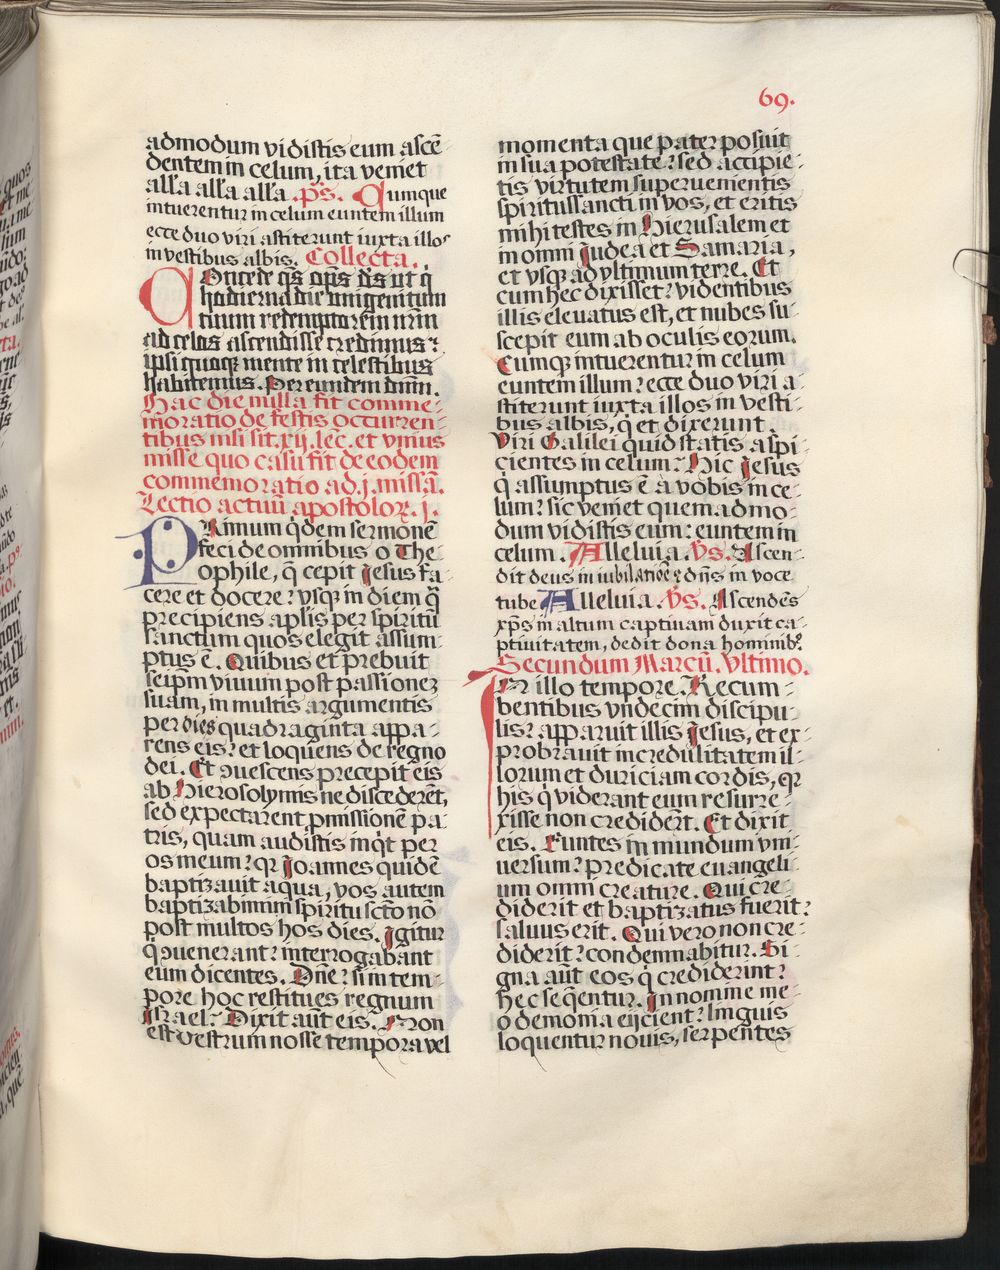 69.
admodum vidistis eum ascē
dentem in celum, ita veniet
alľa alľa alľa .p̄s. Cumque
intuerentur in celum euntem illum
ecce duo viri astiterunt iuxta illos
in vestibus albis. Collecta.
COncede q̄s om̄ps d̄s ut q̇
hodierna die unigenitum
tuum redemptorem nr̄m
ad celos ascendisse credimus:
ipsi quoque mente in celestibus
habitemus. Per eundem dn̄m.
Hac die nulla fit comme-
moratio de festis occurren-
tibus nisi sit .xij. lec. et vnius
misse quo casu fit de eodem
commemoratio ad .j. missā.
Lectio actuū apostoloꝝ .j.
PRimum q̇dem sermonē
feci de omnibus o The-
ophile, q̄ cepit Jesus fa-
cere et docere: vsqꝫ in diem q̄
precipiens ap̄lis per spiritū
sanctum quos elegit assum-
ptus ē. Quibus et prebuit
seip̄m viuum post passionez
suam, in multis argumentis
per dies quadraginta appa-
rens eis: et loquens de regno
dei. Et ꝯuescens precepit eis
ab Hierosolymis ne discederēt,
sed expectarent ꝓmissionē pa-
tris, quam audistis inq̇t per
os meum: qꝛ Joannes quidē
baptizauit aqua, vos autem
baptizabimini spiritu sc̄to nō
post multos hos dies. Igitur
q̇ ꝯuenerant: interrogabant
eum dicentes. Dn̄e: si in tem-
pore hoc restitues regnum
Israel: Dixit aūt eis. Non
est vestrum nosse tempora vel
momenta que pater posuit
in sua potestate: sed accipie-
tis virtutem superuenientis
spiritussancti in vos, et eritis
mihi testes in Hierusalem et
in omni Judea et Samaria,
et vsqꝫ ad vltimum terre. Et
cum hec dixisset: videntibus
illis eleuatus est, et nubes su-
scepit eum ab oculis eorum.
Cumqꝫ intuerentur in celum
euntem illum: ecce duo viri a-
stiterunt iuxta illos in vesti-
bus albis, q̇ et dixerunt.
Viri Galilei quid statis aspi-
cientes in celum: Hic Jesus
q̇ assumptus ē a vobis in ce-
lum: sic veniet quemadmo-
dum vidistis eum: euntem in
celum. Alleluia. Vs. Ascen-
dit deus in iubilatiōe & dn̄s in voce
tube Alleluia. Vs. Ascendēs
xp̄s in altum captiuam duxit ca-
ptiuitatem, dedit dona hominibꝫ.
Secundum Marcū. Vltimo.
IN illo tempore. Recum-
bentibus vndecim discipu-
lis: apparuit illis Jesus, et ex-
probrauit incredulitatem il-
lorum et duriciam cordis, qꝛ
his q̇ viderant eum resurre-
xisse non credidēt. Et dixit
eis. Euntes in mundum vni-
uersum: predicate euangeli-
um omni creature. Qui cre-
diderit et baptizatus fuerit:
saluus erit. Qui vero non cre-
diderit: condemnabitur. Si-
gna aūt eos q̇ crediderint:
hec seq̄entur. In nomine me-
o demonia eijcient: linguis
loquentur nouis, serpentes